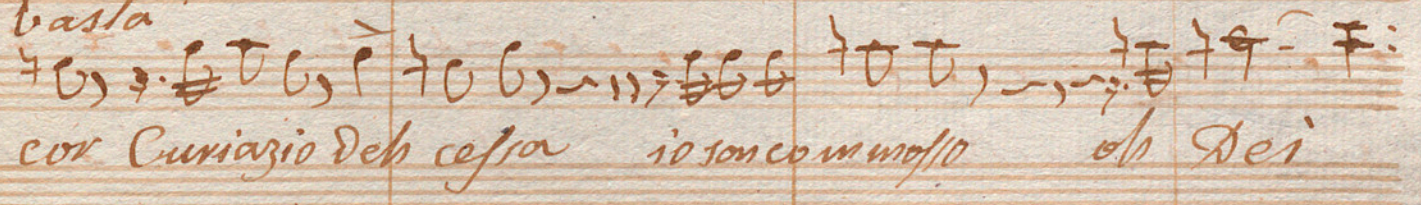 basta
cor Curiazio Deh cessa io son commosso oh Dei